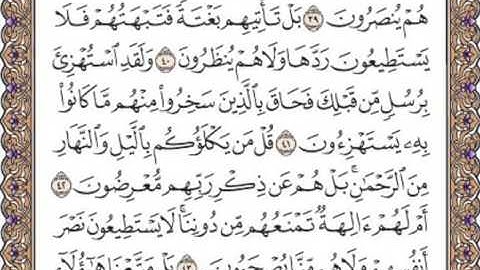 هُمْ يُنصَرُونَ ٣٩ بَلْ تَأْتِيهِم بَغْتَةً فَتَبْهَتُهُمْ فَلَا
يَسْتَطِيعُونَ رَدَّهَا وَلَا هُمْ يُنظَرُونَ ٤٠ وَلَقَدِ ٱسْتُهْزِئَ
بِرُسُلٍ مِّن قَبْلِكَ فَحَاقَ بِٱلَّذِينَ سَخِرُوا۟ مِنْهُم مَّا كَانُوا۟
بِهِۦ يَسْتَهْزِءُونَ ٤١ قُلْ مَن يَكْلَؤُكُم بِٱلَّيْلِ وَٱلنَّهَارِ
مِنَ ٱلرَّحْمَٰنِ ۗ بَلْ هُمْ عَن ذِكْرِ رَبِّهِم مُّعْرِضُونَ ٤٢
أَمْ لَهُمْ ءَالِهَةٌ تَمْنَعُهُم مِّن دُونِنَا ۚ لَا يَسْتَطِيعُونَ نَصْرَ
أَنفُسِهِمْ وَلَا هُم مِّنَّا يُصْحَبُونَ ٤٣ بَلْ مَتَّعْنَا هَٰٓؤُلَآءِ